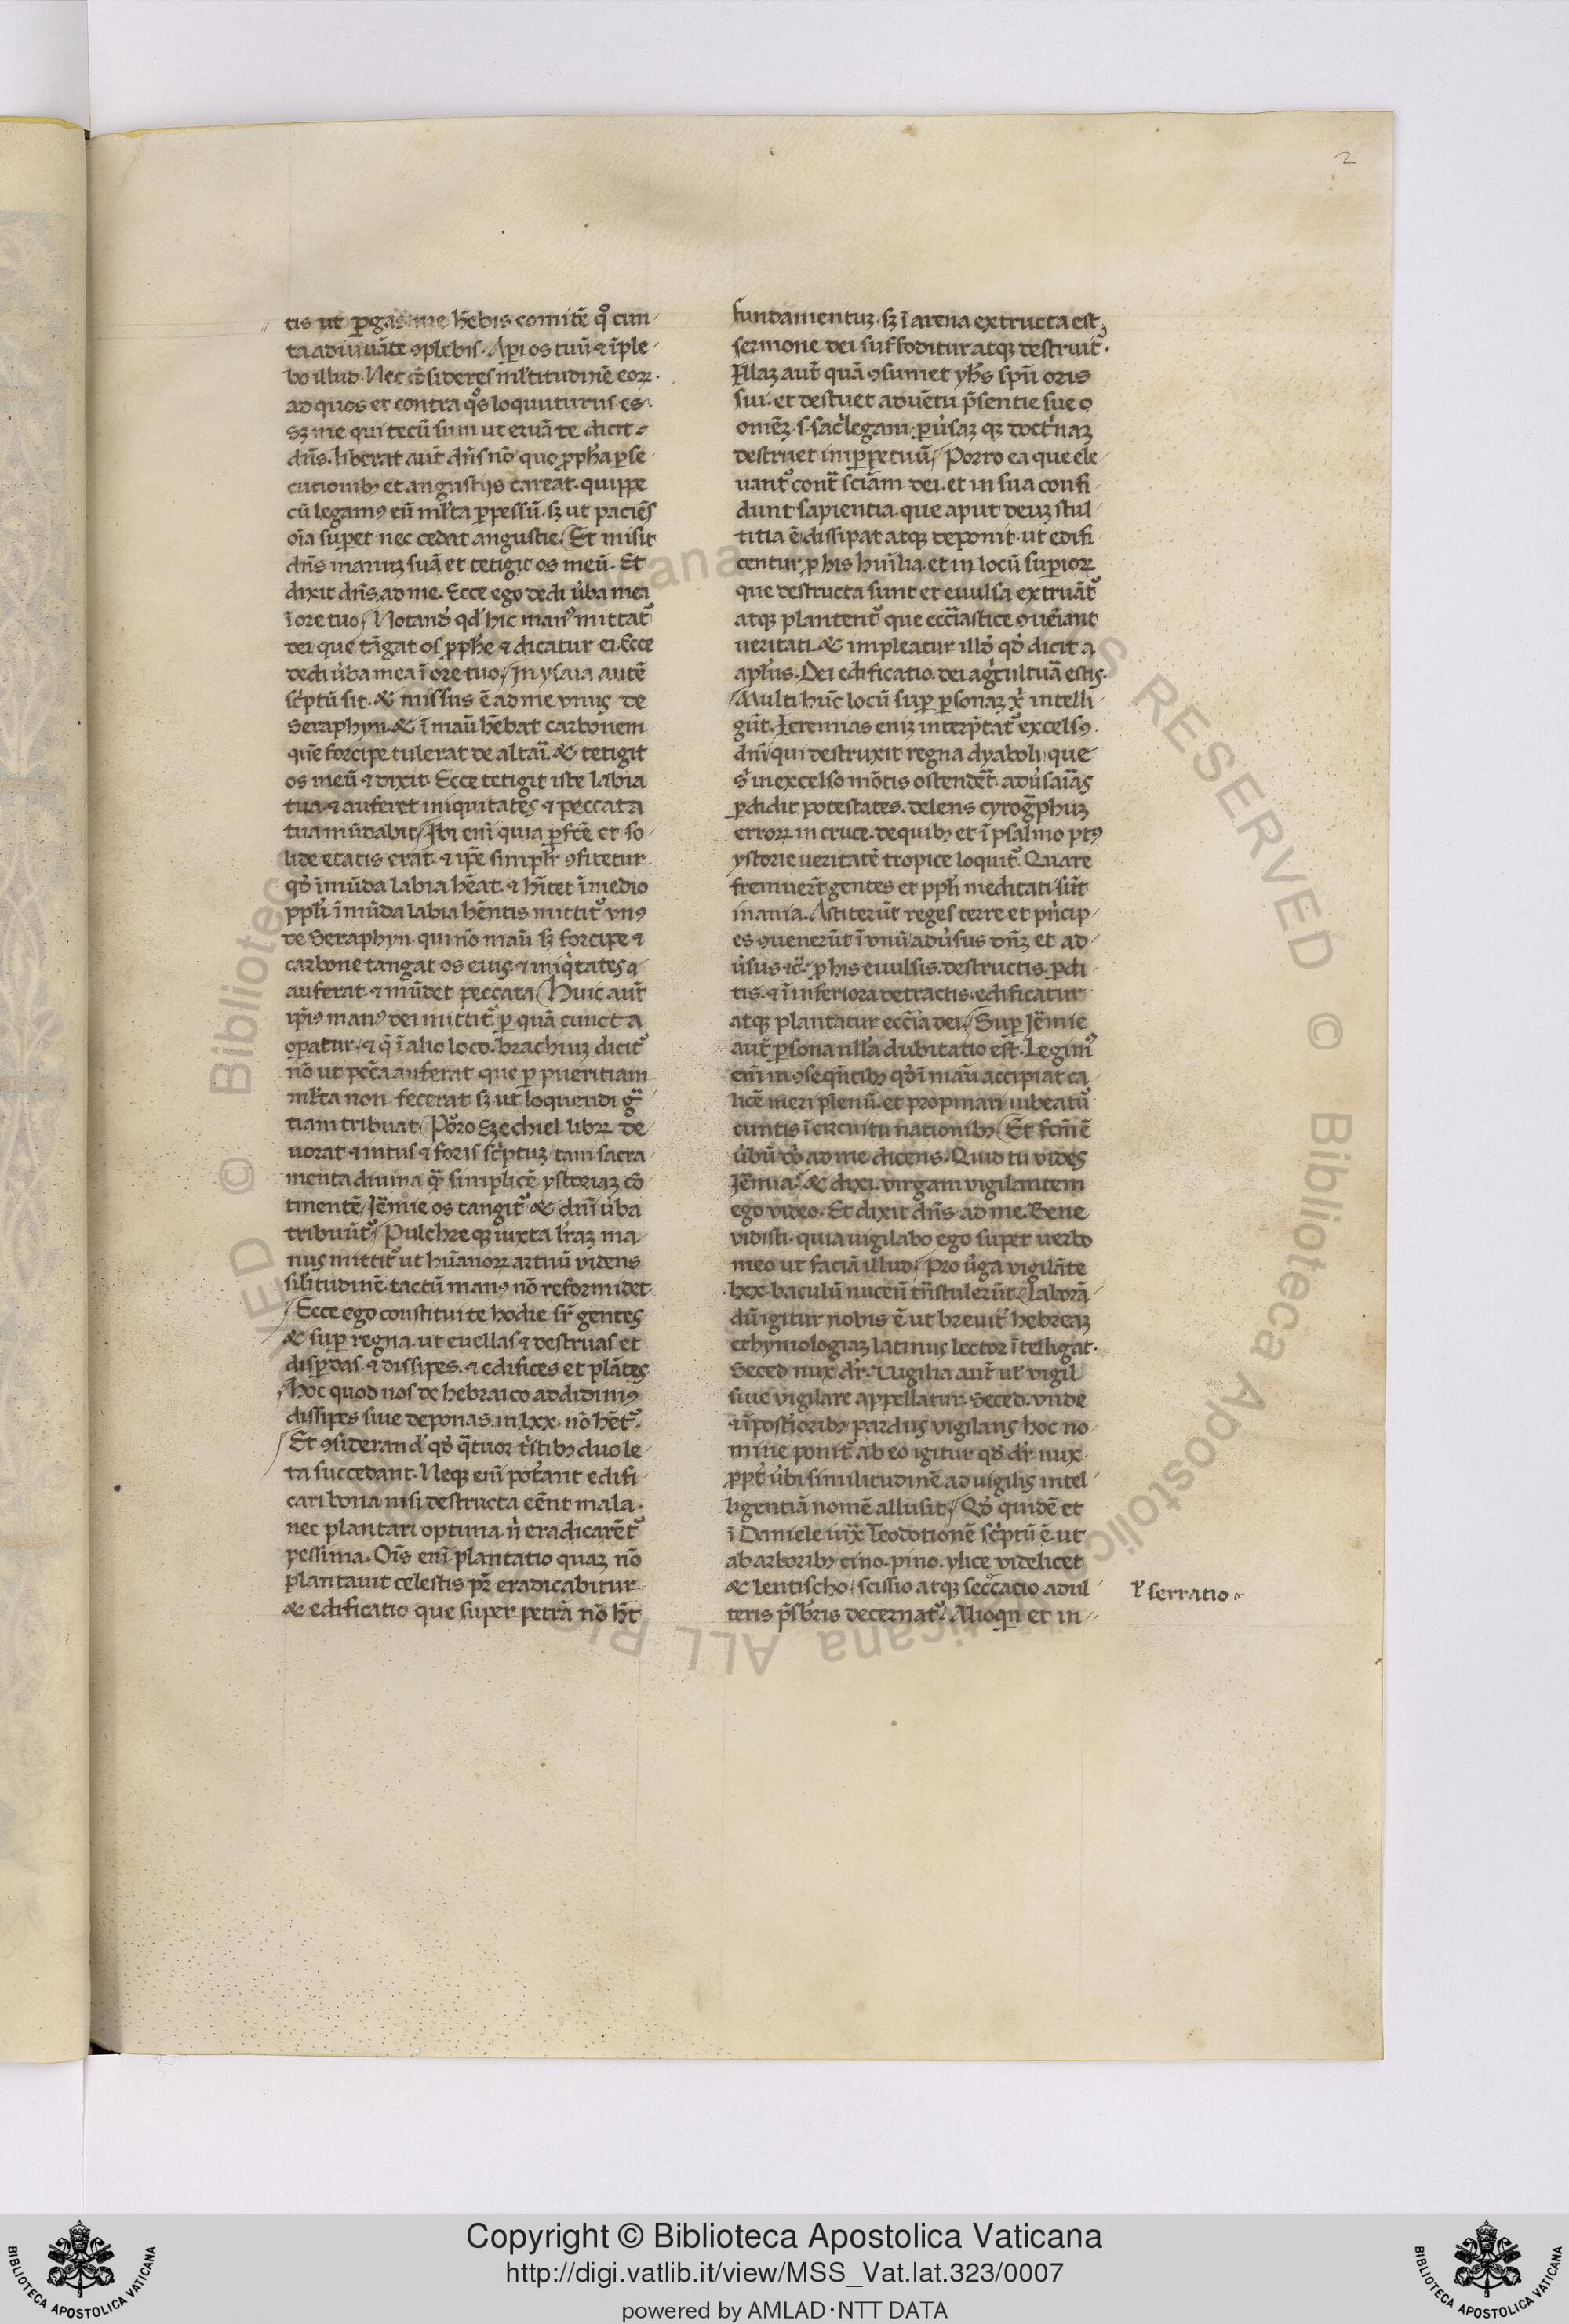 2
tis ut ꝑgas me hēbis comitē qͦ cun
ta adiuuāte ꝯplebis. Aꝑi os tuū ⁊ īple
bo illud. Nec cōsideres ml̄titudinē eoꝝ.
ad quos et contra qͦs loquuturus es.
Sꝫ me qui tecū sum ut eruā te dicit
dn̄s. liberat aut̄ dn̄s nō quo ꝓph̄a ꝑse
cutionibꝫ et angustijs careat. quippe
cū legamꝰ eū ml̄ta ꝑpessū. sꝫ ut paciēs
oīa suꝑet nec cedat angustie Et misit
dn̄s manuꝫ suā et tetigit os meū. Et
dixit dn̄s ad me. Ecce ego dedi ūba mea
ī ore tuo Notand̓ qd̓ hic manꝰ mittat᷑
dei que tāgat os ꝓph̄e ⁊ dicatur ei. Ecce
dedi ūba mea ī ore tuo. In ysaia autē
sc̓ptū sit. & missus ē ad me vnus de
Seraphyn. & ī manū hēbat carbonem
quē forcipe tulerat de altaī. & tetigit
os meū ⁊ dixit. Ecce tetigit iste labia
tua. ⁊ auferet iniquitates ⁊ peccata
tua mūdabit Ibi enī quia ꝑfc̄e et so
lide etatis erat. ⁊ ip̄e simpl̄r ꝯfitetur
qd̓ īmūda labia hēat. ⁊ hītet ī medio
ppl̓i. īmūda labia hēntis mittit᷑ vnꝰ
de Seraphyn. qui nō manū sꝫ forcipe ⁊
carbone tangat os eius. ⁊ iniq̓tates
auferat. ⁊ mūdet peccata Huic aut̄
ip̄iꝰ manꝰ dei mittit᷑ ꝑ quā cuncta
oꝑatur. ⁊ q̄ ī alio loco. brachiuꝫ dicit᷑
nō ut pcc̄a auferat que ꝑ pueritiam
ml̄ta non fecerat sꝫ ut loquendi gͣ
tiam tribuat. Poͬro Ezechiel libꝝ de
uorat ⁊ intus ⁊ foris sc̓ptuꝫ tam sacra
menta diuina qͣ simplicē ystoriaꝫ cō
tinentē Jēmie os tangit᷑ & dn̄i ūba
tribuūt᷑ Pulchre qꝫ iuxta lr̄aꝫ ma
nus mittit᷑ ut hūanoꝝ artuū videns
sil̄itudinē tactū manꝰ nō reformidet.
Ecce ego constitui te hodie sr̄ gentes
& suꝑ regna. ut euellas ⁊ destruas et
disꝑdas. ⁊ dissipes. ⁊ edifices et plātes
hoc quod nos de hebraico addidimꝰ
dissipes siue deponas. in lxx. nō hēt᷑.
Et ꝯsiderand̓ qd̓ qͣtuor tͥstibꝫ duo le
ta succedant. Neqꝫ enī pot̓ant edifi
cari bona nisi destructa eēnt mala.
nec plantari optima nͥ eradicarēt᷑
pessima. Oīs enī plantatio quaꝫ nō
plantauit celestis pr̄ eradicabitur
& edificatio que super petrā nō ht̄
fundamentuꝫ. sꝫ ī arena extructa est
sermone dei suffoditur atqꝫ destruit᷑.
Illaꝫ aut̄ quā ꝯsumet yh̄s spū oris
sui. et destuet aduētu p̄sentie sue o
omēꝫ .s. sac̓legam. ꝑūsaꝫ qꝫ doct̓naꝫ
destruet in ꝑpetuū Porro ea que ele
uant᷑ contͣ sciām dei. et in sua confi
dunt sapientia. que aput deuꝫ stul
titia ē dissipat atqꝫ deponit. ut edifi
centur ꝓ his hūilia. et in locū suꝑioꝝ
que destructa sunt et euulsa extruāt᷑
atqꝫ plantent᷑ que eccl̄iastice ꝯueniant
ueritati. & impleatur illd̓ qd̓ dicit a
apl̓us. Dei edificatio. dei agͥcultura estis.
Multi hūc locū suꝑ ꝑsonaꝫ xͥ intelli
gūt. Jeremias eniꝫ interp̄tat᷑ excelsꝰ
dn̄i qui destruxit regna dyaboli que
sͥ in excelso mōtis ostenderat adūsariꝰ
ꝑdidit potestates. delens cyrogͣphuꝫ
erroꝝ in cruce. de quibꝫ et ī psalmo ptꝰ
ystorie ueritatē tropice loquit᷑. Quare
fremuer̄t gentes et ppl̓i meditati sūt
inania. Astiterūt reges terre et pͥncip
es ꝯuenerūt ī vnū adūsus dn̄ꝫ et ad
ūsus ⁊c̄. ꝓ his euulsis. destructis. ꝑdi
tis. ⁊ ī inferiora detractis. edificatur
atqꝫ plantatur eccl̄ia dei. Suꝑ Jēmie
aut̄ ꝑsona nll̓a dubitatio est. Legimꝰ
enī in ꝯseqn̄tibꝫ qd̓ ī manū accipiat ca
licē meri plenū. et propinari iubeatur
cuntis ī circuitu nationibꝫ Et fc̄m ē
ūbū dn̄i ad me dicens. Quid tu vides
Jēmia. & dixi. virgam vigilantem
ego video. Et dixit dn̄s ad me. Bene
vidisti. quia uigilabo ego super uerbo
meo ut faciā illud. Pro ūga vigilāte
.lxx. baculū nuceū tn̄stulerūt. Laborā
dū igitur nobis ē ut breuit᷑ hebreaꝫ
ethymologiaꝫ latinus lector ītelligat.
Seced nux dr̄. Vigilia aut̄ ul̓ vigil
siue vigilare appellatur. Seced. vnde
⁊ ī postioribꝫ pardus vigilans hoc no
mine ponit᷑. ab eo igitur qd̓ dr̄. nux
ꝓpt̓ ūbi similitudinē ad uigilis intel
ligentiā nomē allusit. Qd̓ quidē et
ī Daniele iuxͣ Teodotionē sc̓ptū ē. ut
ab arboribꝫ cino. pino. ylice videlicet
& lentischo. scissio atqꝫ seccatio adul
teris p̄sb̄ris decernat᷑. Alioqͥn et in
ł serratio
Copyright © Biblioteca Apostolica Vaticana
http://digi.vatlib.it/view/MSS_Vat.lat.323/0007
powered by AMLAD·NTT DATA